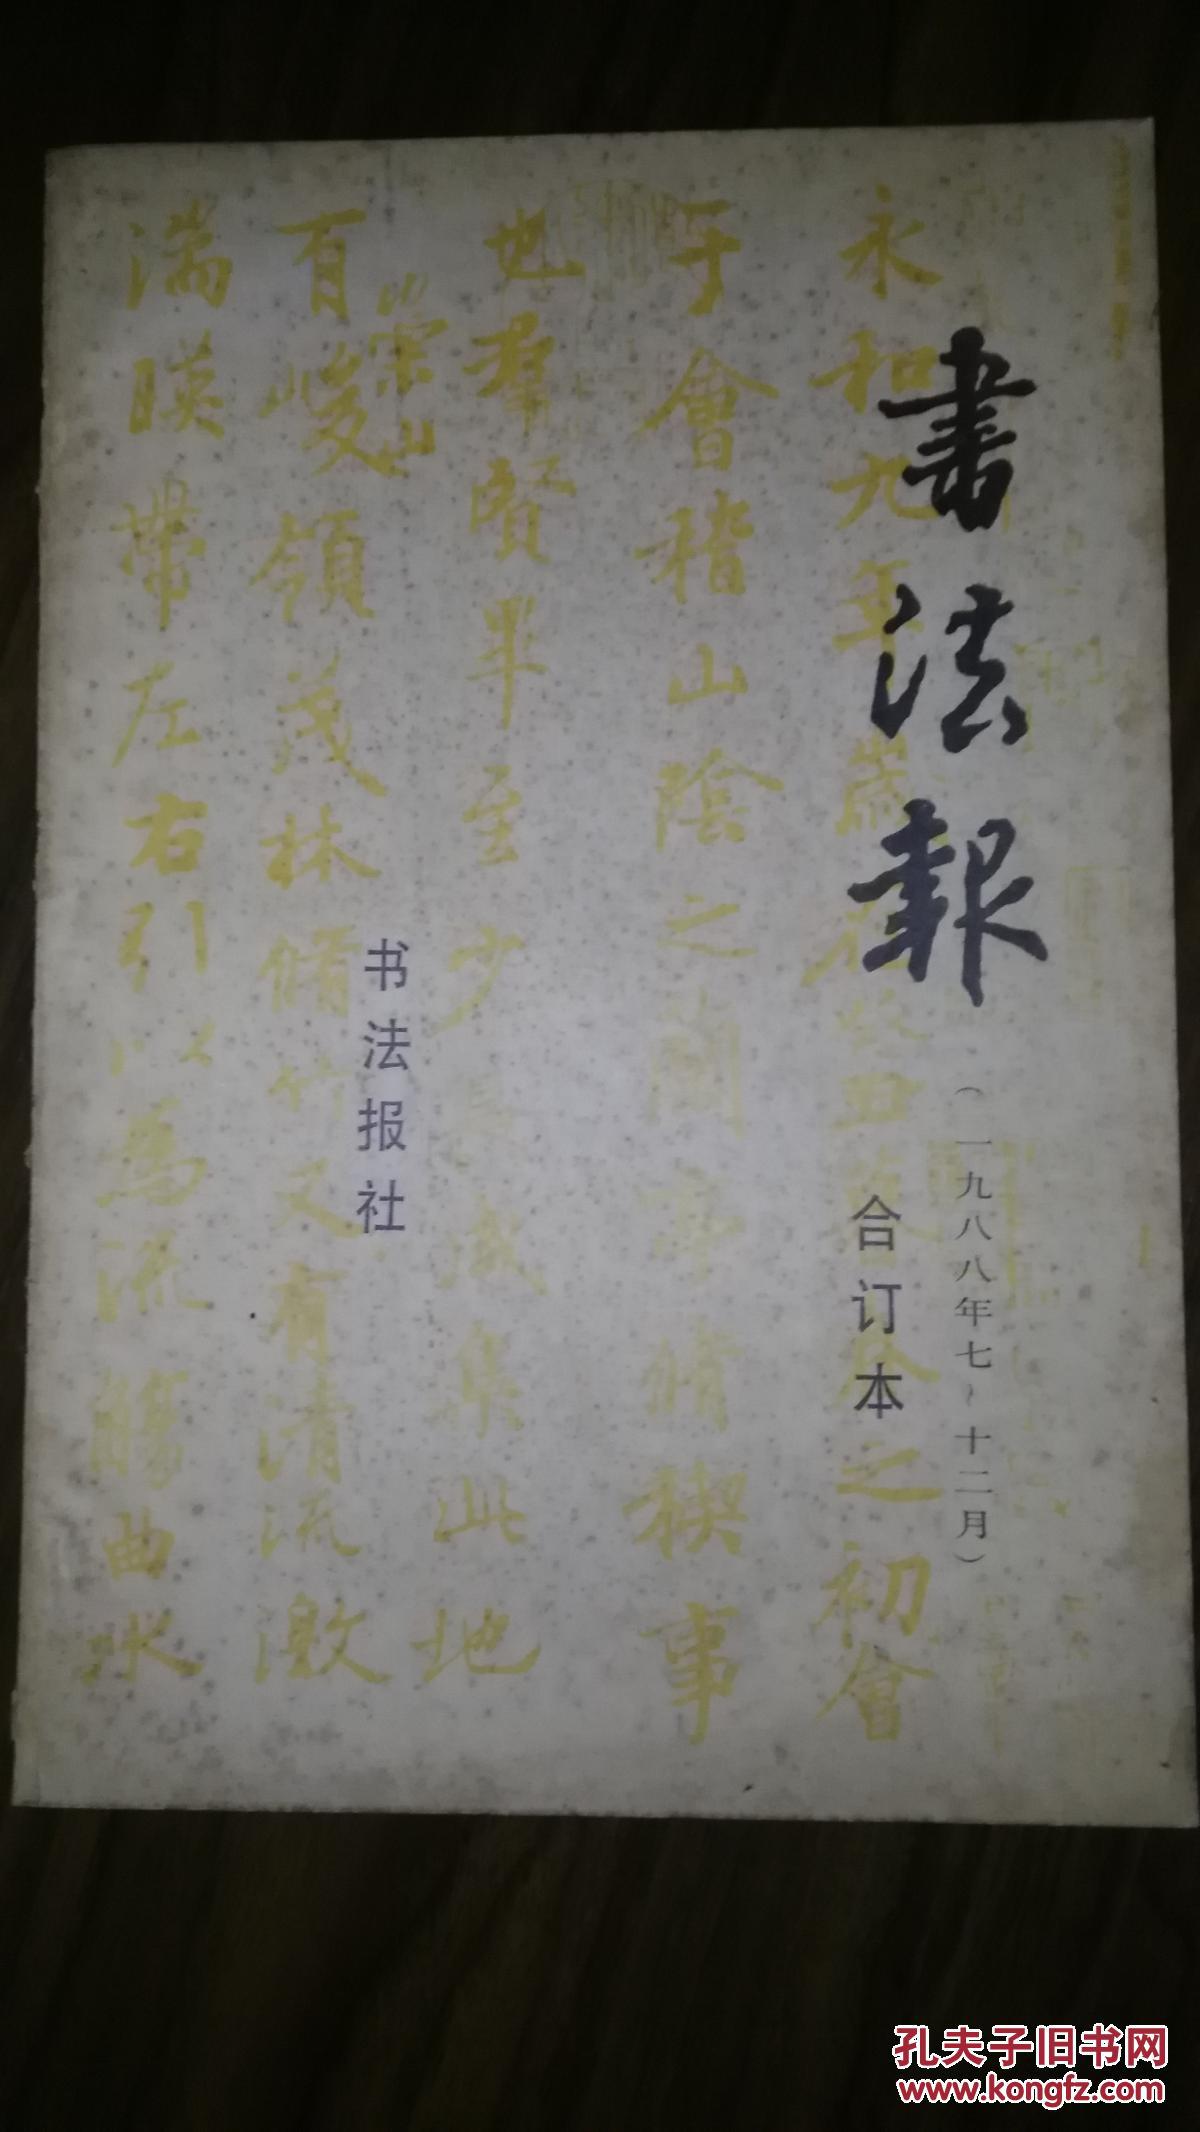 書法報
(一九八八年七~十二月)
合订本
书法报社
永和九年歲在癸丑暮春之初會
于會稽山陰之蘭亭脩稧事
也羣賢畢至少長咸集此地
有崇山
峻領茂林脩竹又有清流激
湍暎帶左右引以為流觴曲水
孔夫子旧书网
www.kongfz.com